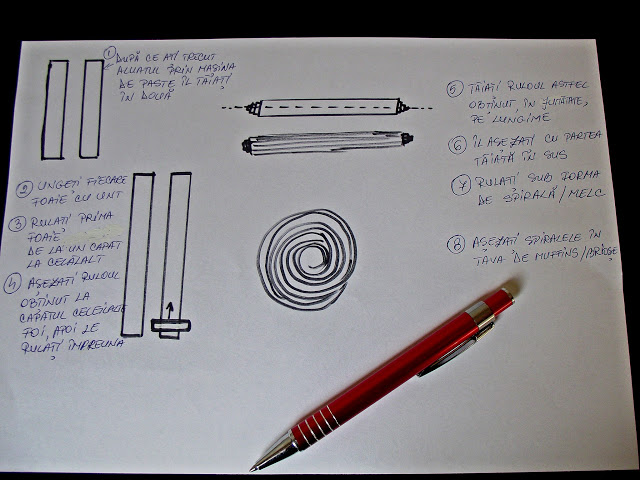 1 DUPĂ CE AȚI TRECUT
ALUATUL PRIN MAȘINA
DE PASTE ÎL TĂIAȚI
ÎN DOUĂ
2 UNGEȚI FIECARE
FOAIE CU UNT
3 RULAȚI PRIMA
FOAIE
DE LA UN CAPAT
LA CELĂLALT
4 AȘEZAȚI RULOUL
OBȚINUT LA
CAPATUL CELEILALTE
FOI, APOI LE
RULAȚI ÎMPREUNA
5 TĂIAȚI RULOUL ASTFEL
OBȚINUT, ÎN JUMĂTATE,
PE LUNGIME
6 ÎL AȘEZAȚI CU PARTEA
TĂIATĂ ÎN SUS
7 RULAȚI SUB FORMA
DE SPIRALĂ/MELC
8 AȘEZAȚI SPIRALELE ÎN
TAVA DE MUFFINS/BRIOȘE